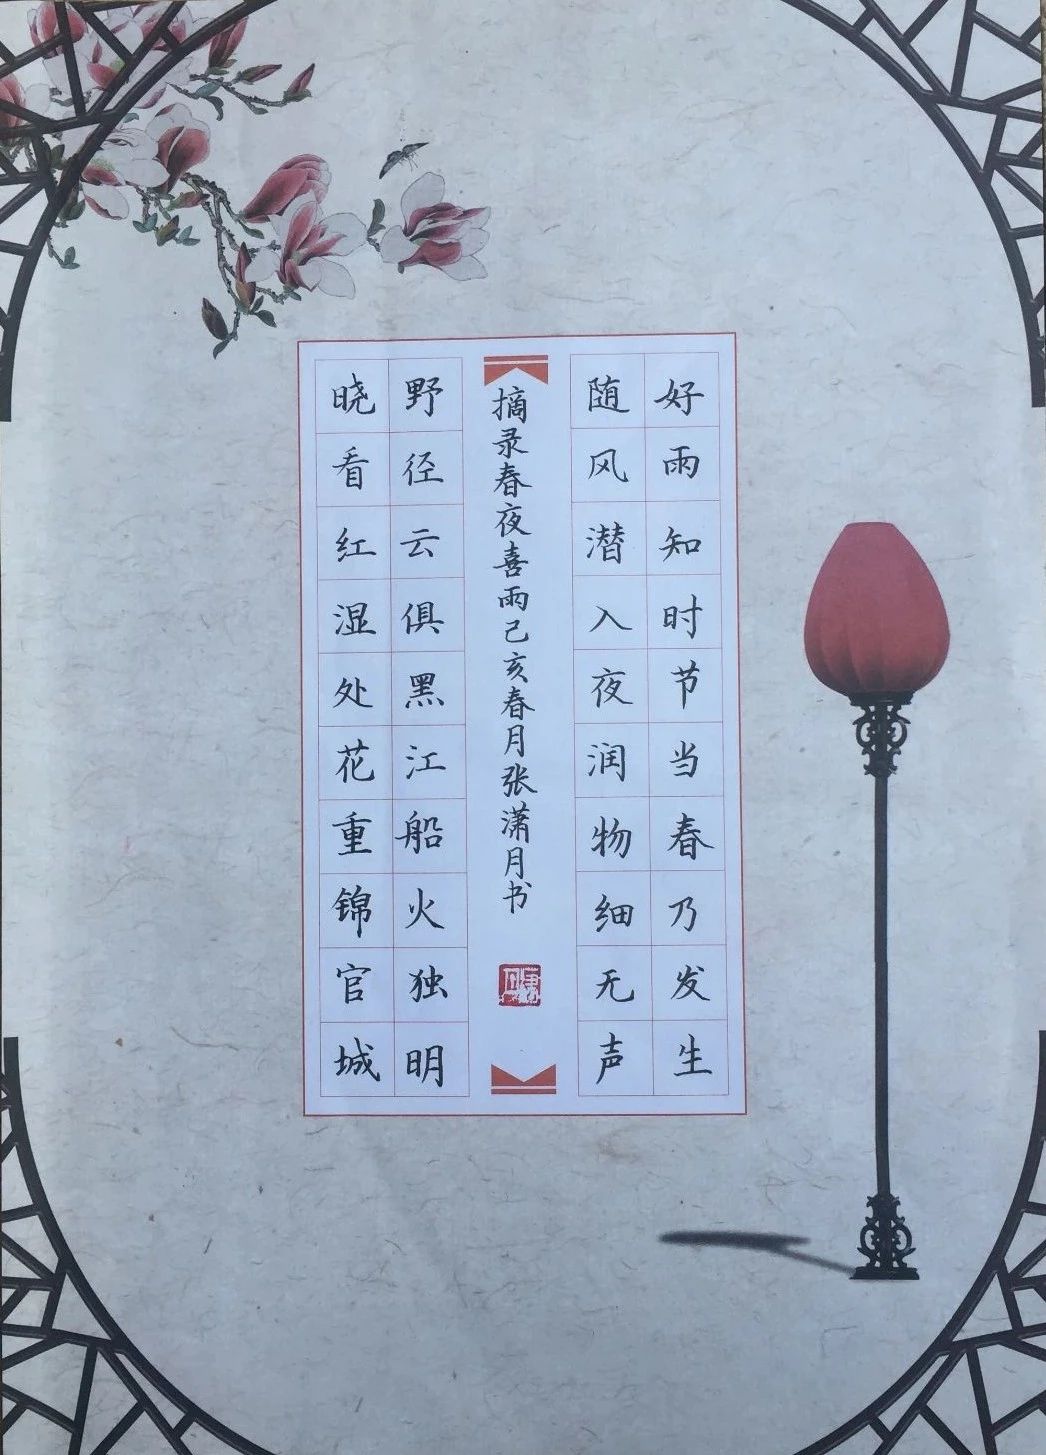 好雨知时节当春乃发生
随风潜入夜润物细无声
摘录春夜喜雨己亥春月张潇月书
野径云俱黑江船火独明
晓看红湿处花重锦官城